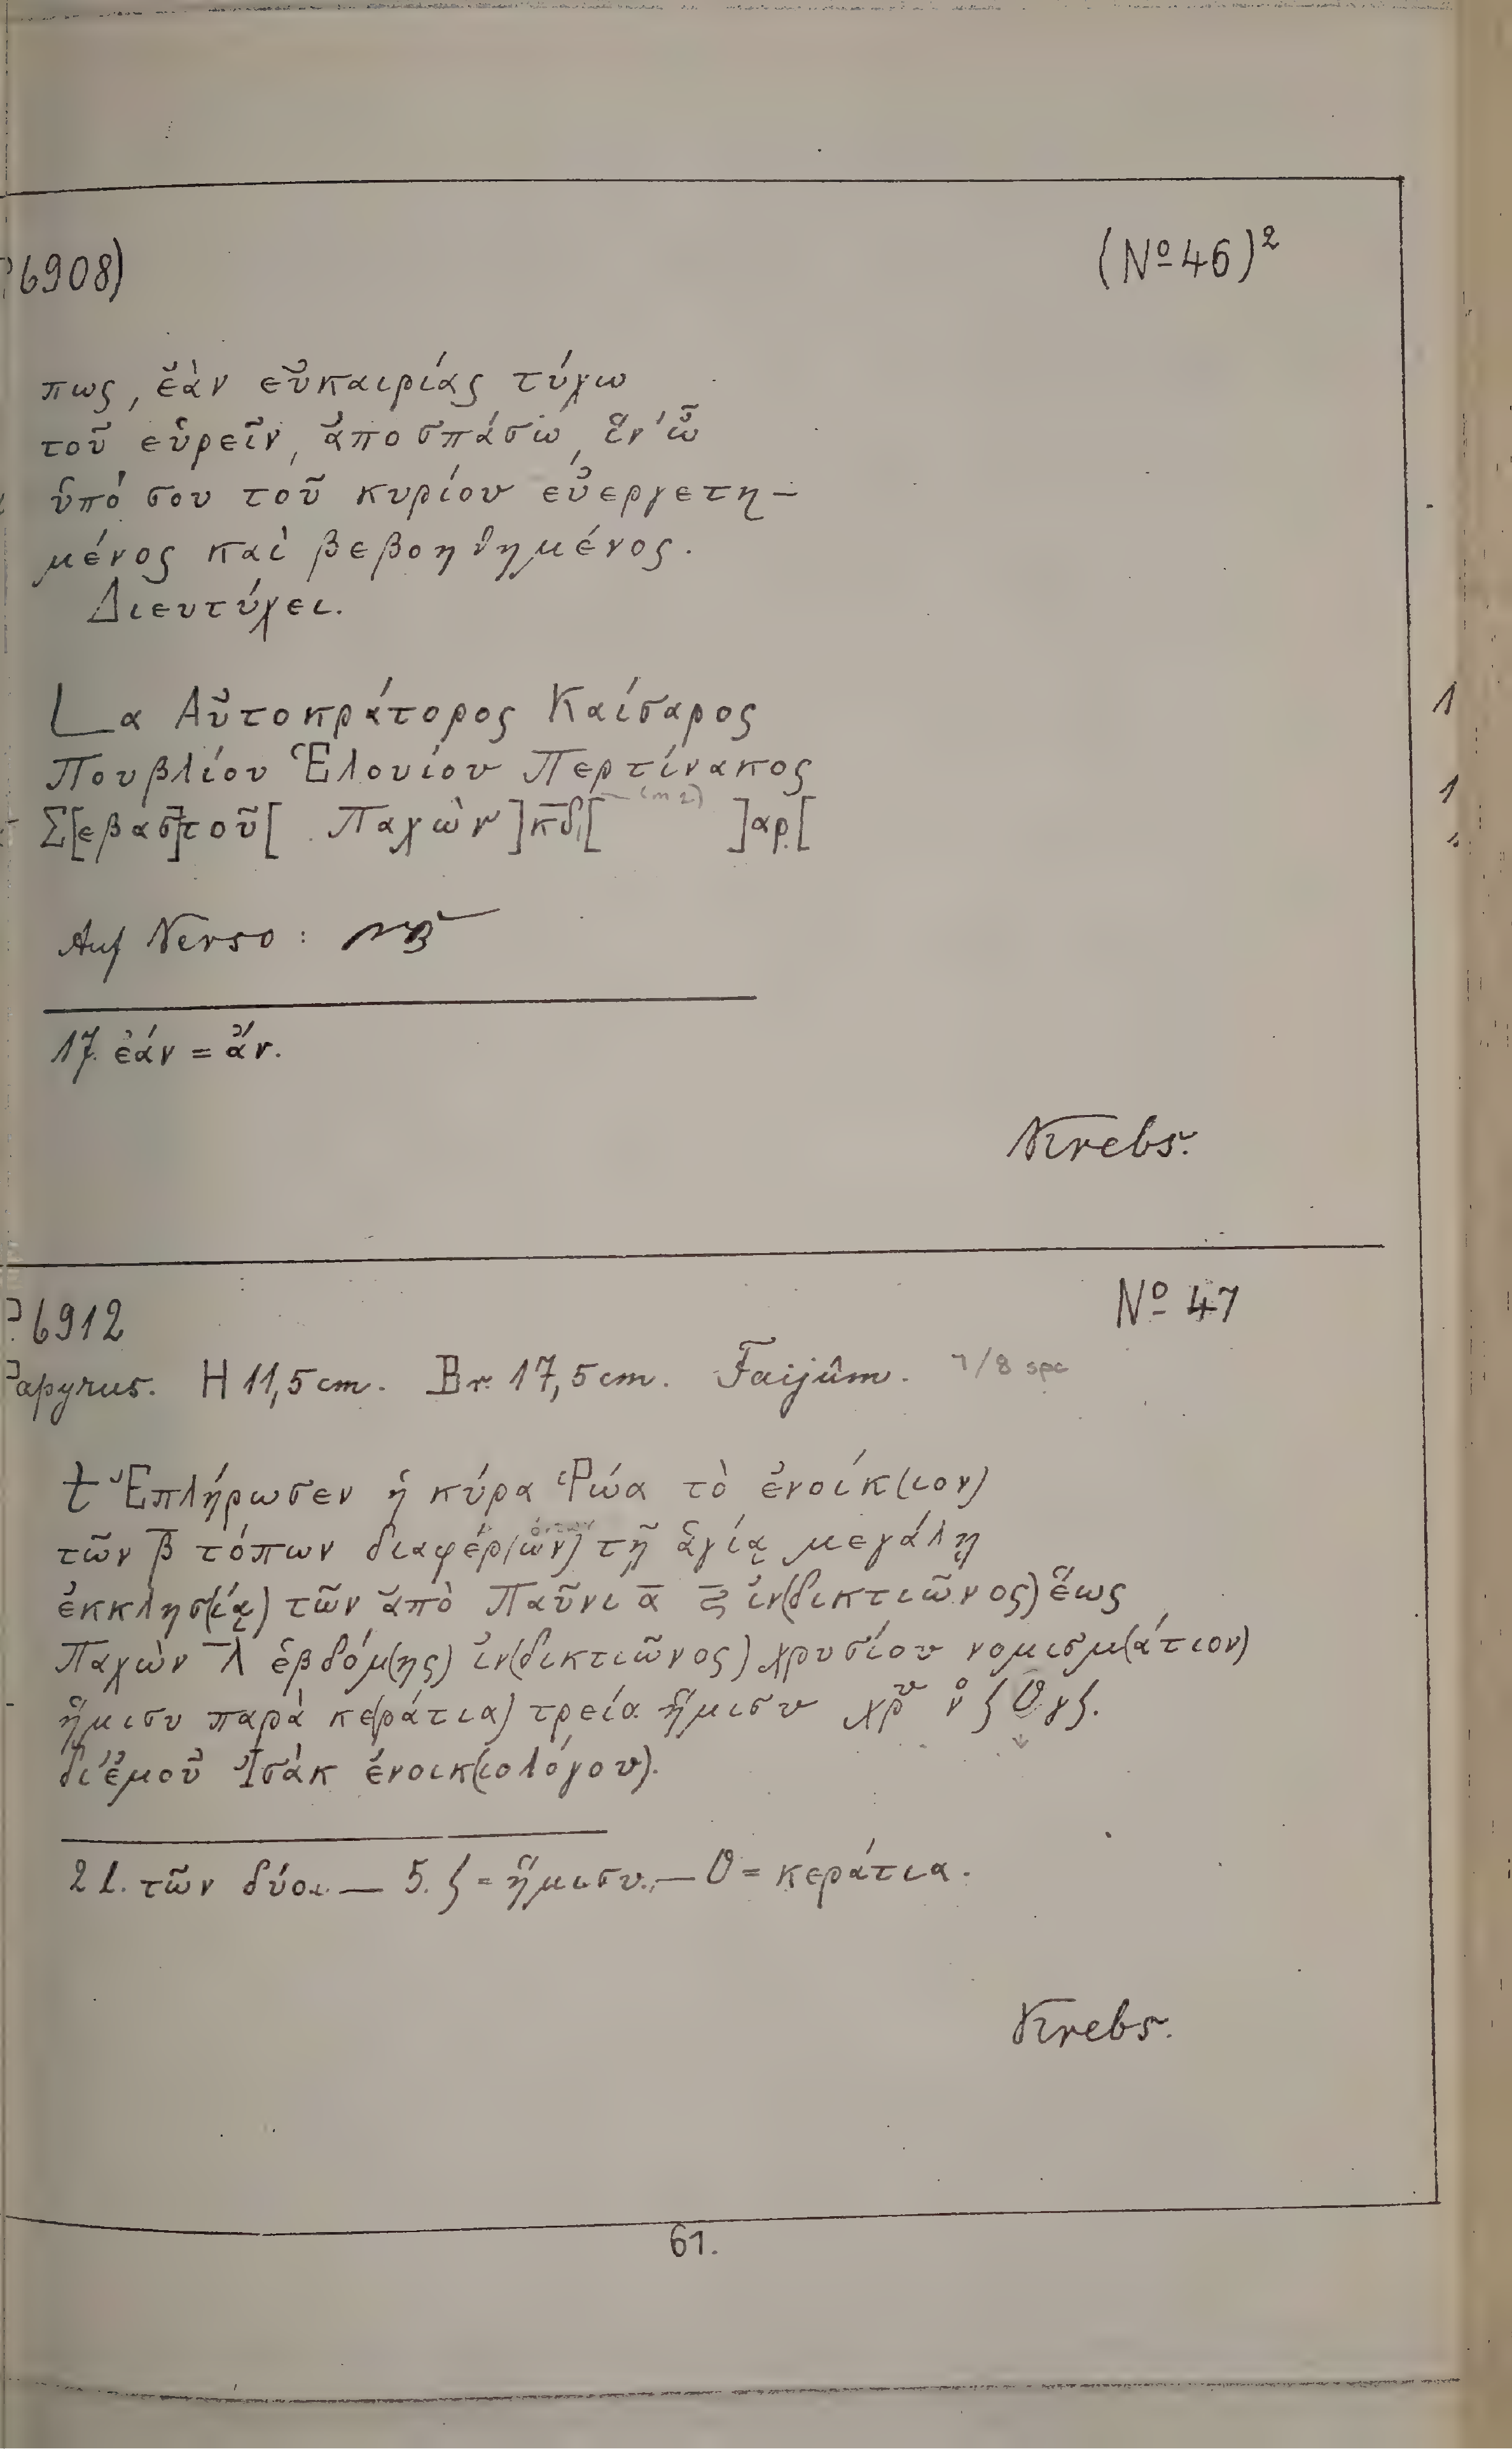 P 6908)
(No 46)²
πως, ἐὰν εὐκαιρίας τύχω
τοῦ εὑρεῖν, ἀποσπάσω, ἵν' ὦ
ὑπό σου τοῦ κυρίου εὐεργετη-
μένος καὶ βεβοηθημένος.
Διευτύχει.
L α Αὐτοκράτορος Καίσαρος
Πουβλίου Ἑλουίου Περτίνακος
Σ[εβασ]τοῦ[ Παχὼν ]κδ[ (m 2) ]αρ.[
Auf Verso:
17. ἐάν = ἄν.
Krebs.
P 6912
No 47
Papyrus. H 11,5 cm. Br. 17,5 cm. Faijûm. 7/8 spc
† Ἐπλήρωσεν ἡ κύρα Ῥώα τὸ ἐνοίκ(ιον)
τῶν β̅ τόπων διαφερ(όντων) τῇ ἁγίᾳ μεγάλῃ
ἐκκλησ(ίᾳ) τῶν ἀπὸ Παῦνι α̅ ἰν(δικτιῶνος) ἕως
Παχὼν λ̅ ἑβδόμ(ης) ἰν(δικτιῶνος) χρυσίου νομισμ(άτιον)
ἥμισυ παρὰ κε(ράτια) τρεία ἥμισυ χρυ νο ϛ θ γϛ.
δι' ἐμοῦ Ἰσὰκ ἐνοικ(ιολόγου).
2 l. τῶν δύο. — 5. ϛ = ἥμισυ. — θ = κεράτια.
Krebs.
61.